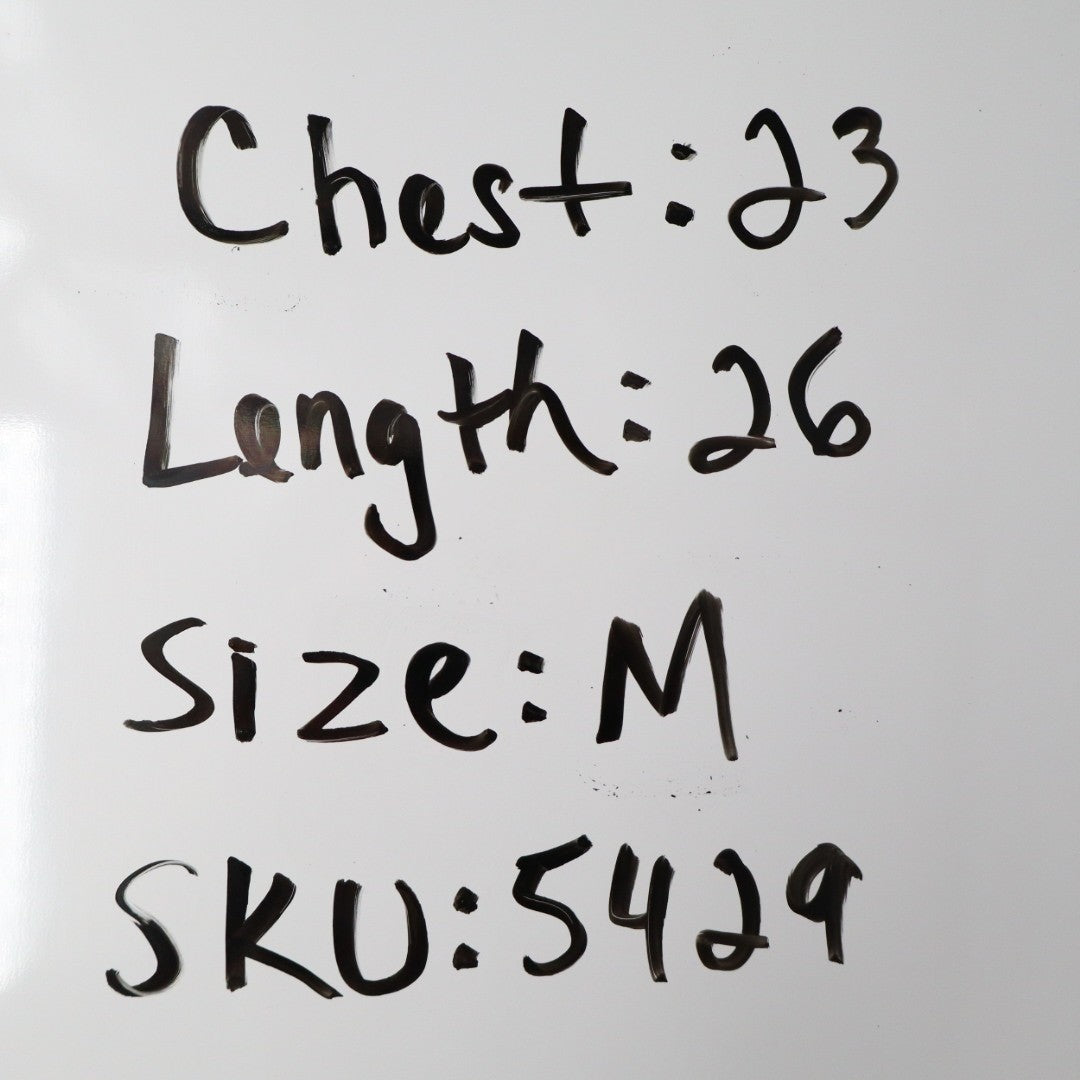 Chest:23
Length:26
Size:M
SKU:5429